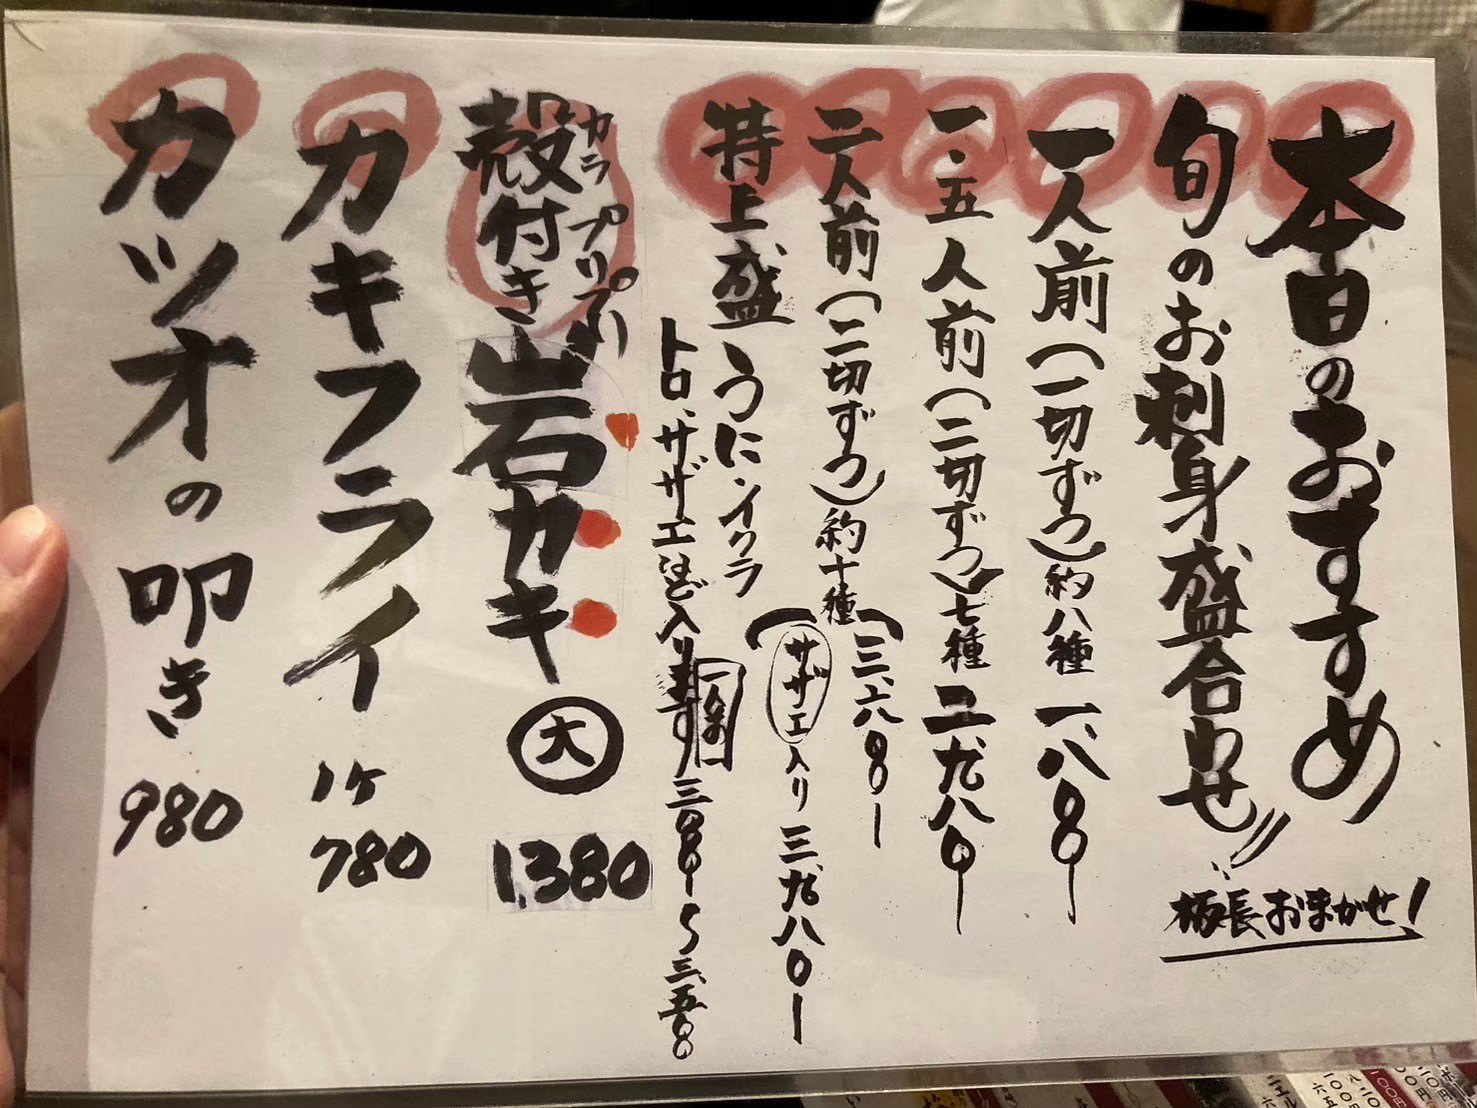 本日のおすすめ
旬のお刺身盛合わせ
板長おまかせ!
一人前(一切ずつ)約八種 一、八〇〇
一・五人前(二切ずつ)七種 二、九八〇
二人前(二切ずつ)約十種
三、六八〇
サザエ入り 三、九八〇
特上盛 うに・イクラ
トロ、サザエなど入ります
一人前
三五〇〇
カラ プリプリ
殻付き岩カキ 大 1,380
カキフライ 1ケ 780
カツオの叩き 980